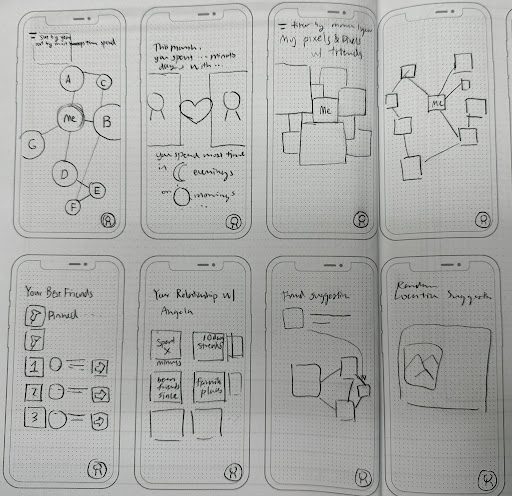 sort by year
time spend
A
C
Me
B
G
D
E
F
This month,
you spent ... minutes
with ...
you spend most time
in evenings
on mornings
filter by
My pixels & Pixels
w/ friends
Me
Me
Your Best Friends
Pinned
1
2
3
Your Relationship w/
Angela
Spent
X
minutes
streaks
been
friends
since
places
Friend suggestion
Random
Location Suggestion